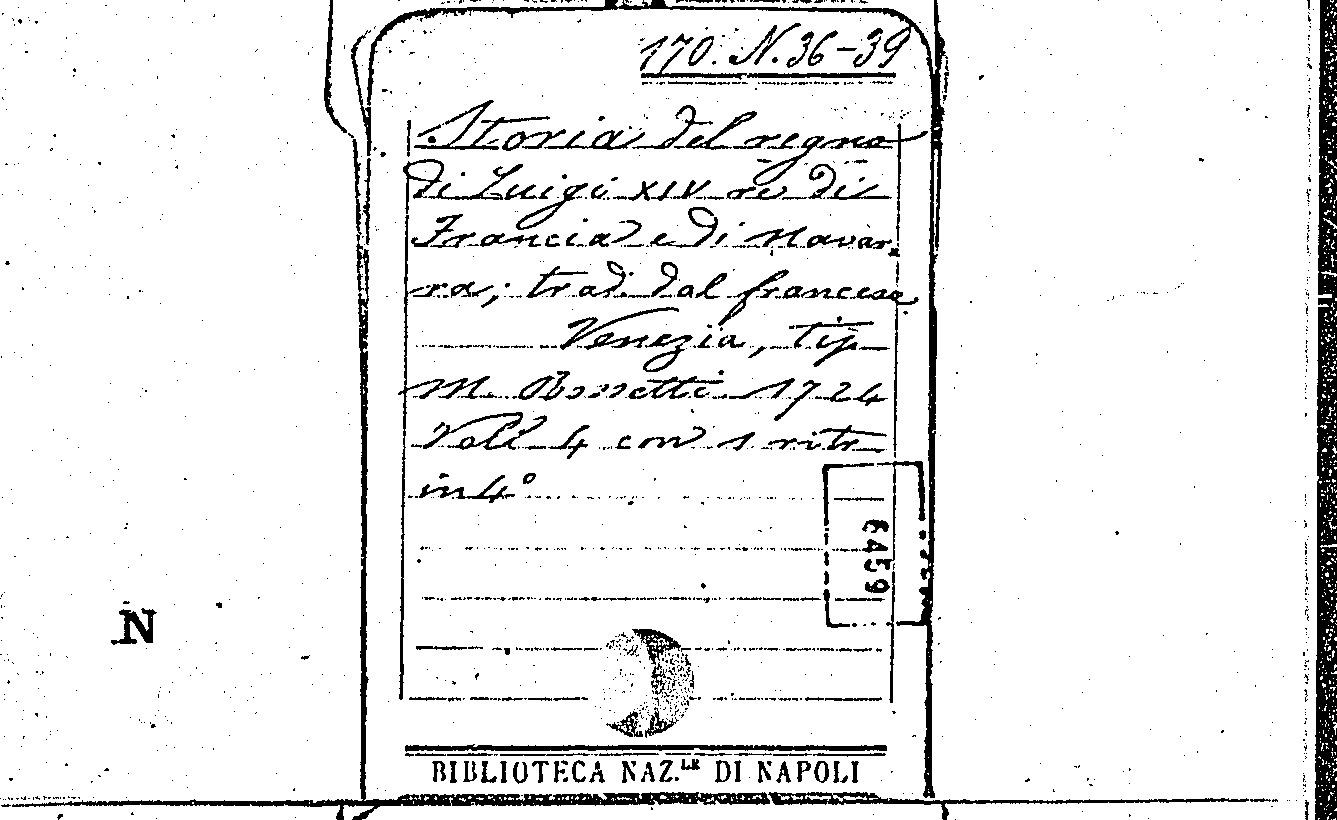 170. N. 36-39
Storia del regno
di Luigi XIV re di
Francia e di Navar-
ra; trad. dal francese
Venezia, tip
M. 1724
Vol.i 4 con 1 ritr
in 4°
6459
N
BIBLIOTECA NAZ.LE DI NAPOLI